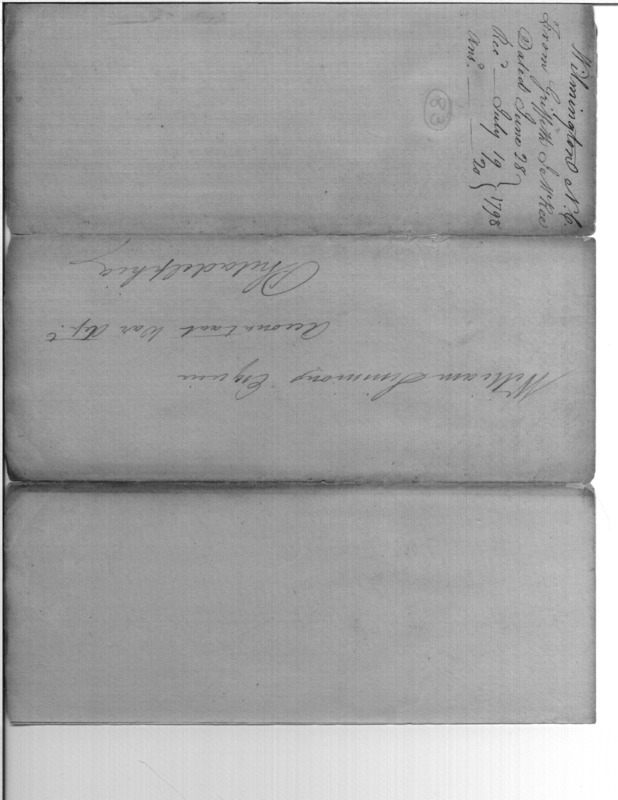 Wilmington N.C.
From Griffith J. McRee
Dated June 28
Recd. July 19 } 1798
Ansd. 20
83
William Simmons Esquire
Accountant War Dept.
Philadelphia